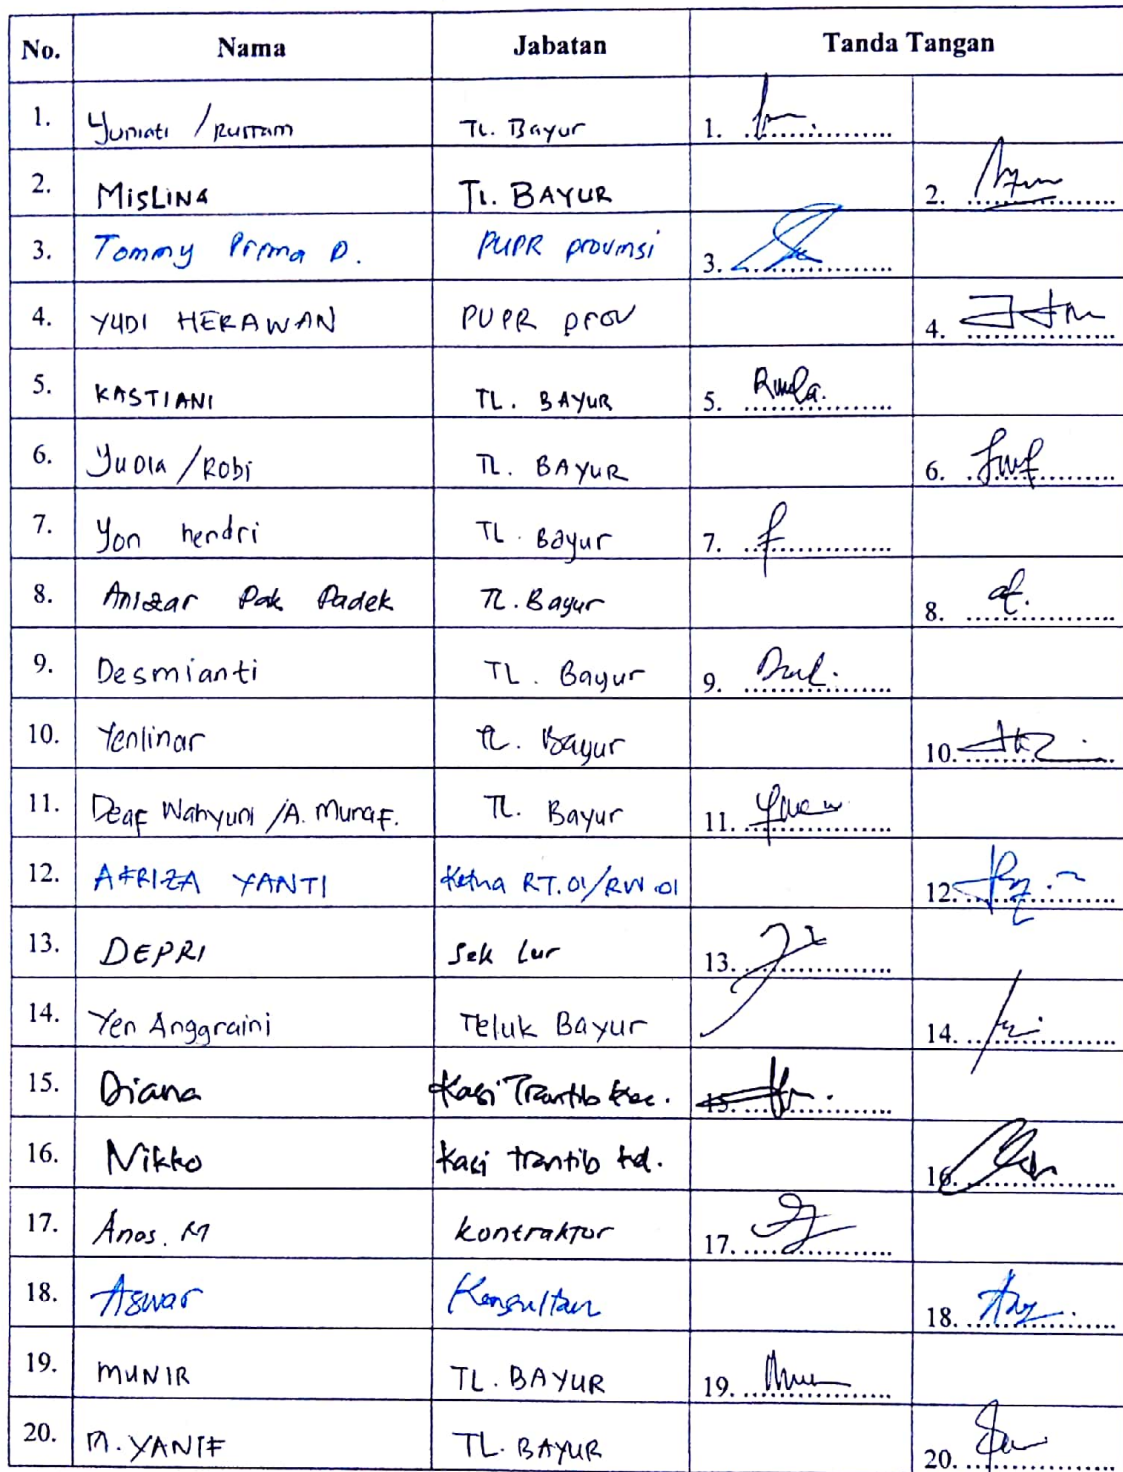 No. Nama Jabatan Tanda Tangan
1. Yuniati / Rustam TL. Bayur 1. ...............
2. MISLINA TL. BAYUR 2. ...............
3. Tommy Prima D. PUPR provinsi 3. ...............
4. YUDI HERAWAN PUPR prov 4. ...............
5. KASTIANI TL. BAYUR 5. ...............
6. Yudia / Robi TL. BAYUR 6. ...............
7. Yon hendri TL. Bayur 7. ...............
8. Anizar Pak Padek TL. Bayur 8. ...............
9. Desmianti TL. Bayur 9. ...............
10. Yenlinar TL. Bayur 10. ...............
11. Deaf Wahyuni / A. Munaf. TL. Bayur 11. ...............
12. AFRIZA YANTI Ketua RT.01/RW.01 12. ...............
13. DEPRI Sek Lur 13. ...............
14. Yen Anggraini Teluk Bayur 14. ...............
15. Diana Kasi Trantib Kec. 15. ...............
16. Nikko Kasi trantib kel. 16. ...............
17. Anas. M kontraktor 17. ...............
18. Aswar Konsultan 18. ...............
19. MUNIR TL. BAYUR 19. ...............
20. M. YANIF TL. BAYUR 20. ...............